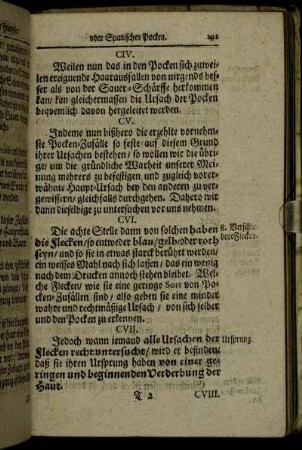 oder Spanischen Pocken. 291
CIV.
Weilen nun das in den Pocken sich zuwei-
len ereignende Haarausfallen von nirgends bes-
ser als von der Sauer-Schärffe herkommen
kan/ kan gleichermassen die Ursach der Pocken
beqvemlich davon hergeleitet werden.
CV.
Indeme nun bißhero die erzehlte vornehm-
ste Pocken-Zufälle so feste auf diesem Grund
ihrer Ursachen bestehen/ so wollen wir die übri-
ge/ um die gründliche Warheit unserer Mei-
nung mehrers zu befestigen und zugleich vorer-
wähnte Haupt-Ursach bey den anderen zu ver-
gewissern/ gleichfalls durchgehen. Dahero wir
dann dieselbige zu untersuchen vor uns nehmen.
CVI.
Die achte Stelle dann von solchen haben
die Flecken/ so entweder blau/ gelb/ oder roth
seyn/ und so sie in etwas starck berührt werden/
ein weisses Mahl nach sich lassen/ das ein wenig
nach dem Drucken annoch stehen bleibet. Wel-
che Flecken/ wie sie eine geringe Sort von Po-
cken-Zufällen sind/ also geben sie eine minder
wahre und rechtmäßige Ursach/ von sich selber
und den Pocken zu erkennen.
8. Verschie-
dene Flecken.
CVII.
Jedoch wann iemand alle Ursachen der
Flecken recht untersucht/ wird er befinden/
daß sie ihren Ursprung haben von einer ge-
ringen und beginnenden Verderbung der
Haut.
Ursprung
T 2 CVIII.